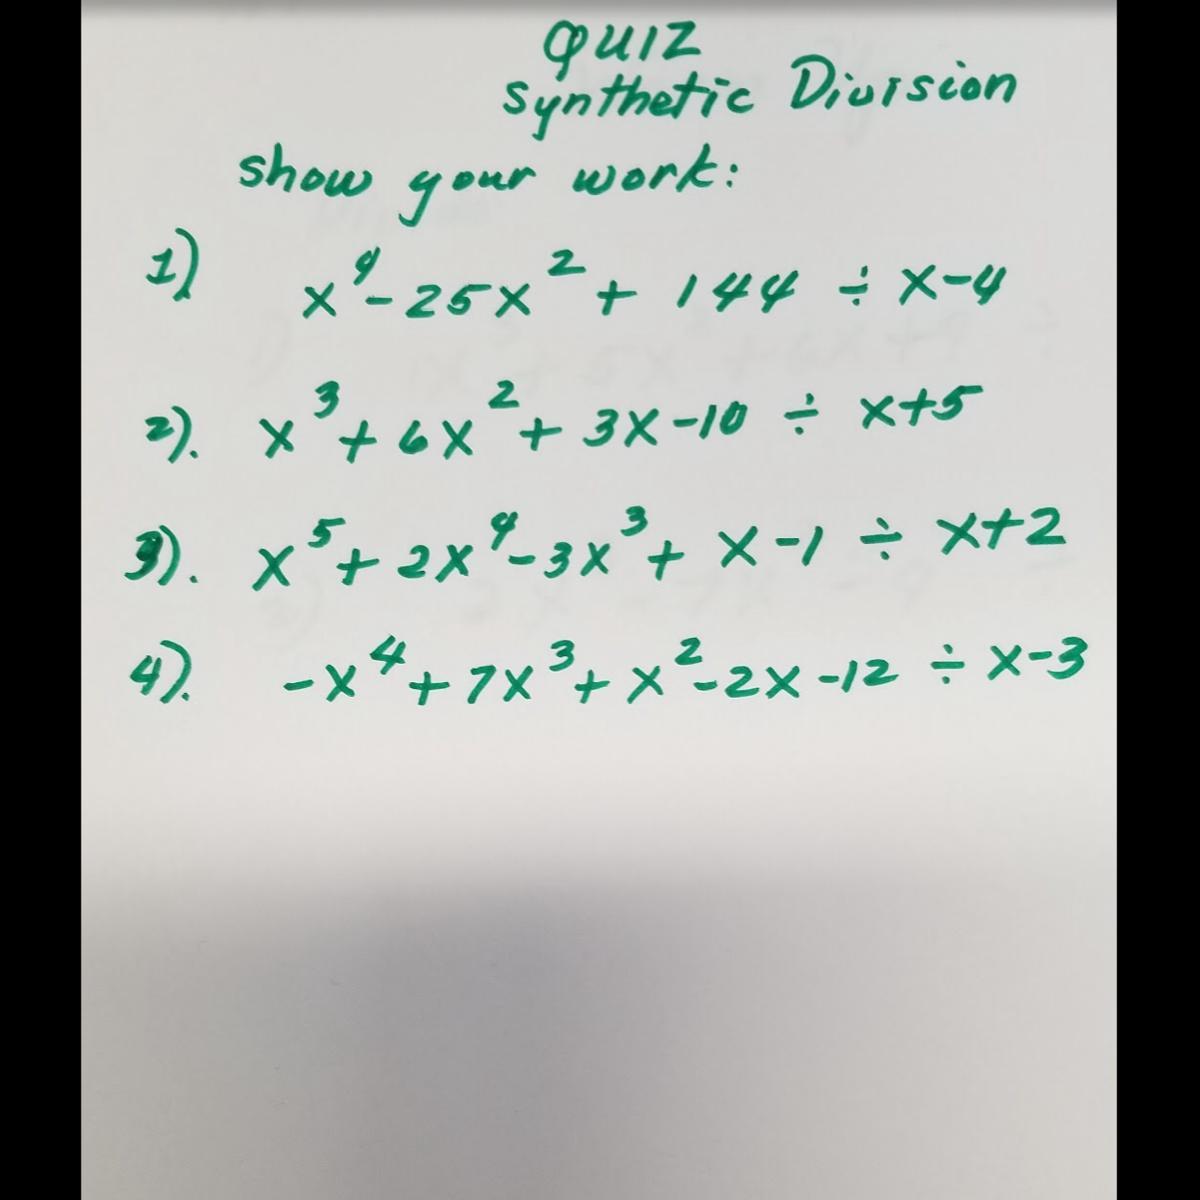 QUIZ
Synthetic Division
show your work:
1) x⁴-25x² + 144 ÷ x-4
2). x³+6x²+ 3x-10 ÷ x+5
3). x⁵+ 2x⁴-3x³+ x-1 ÷ x+2
4). -x⁴+7x³+x²-2x-12 ÷ x-3